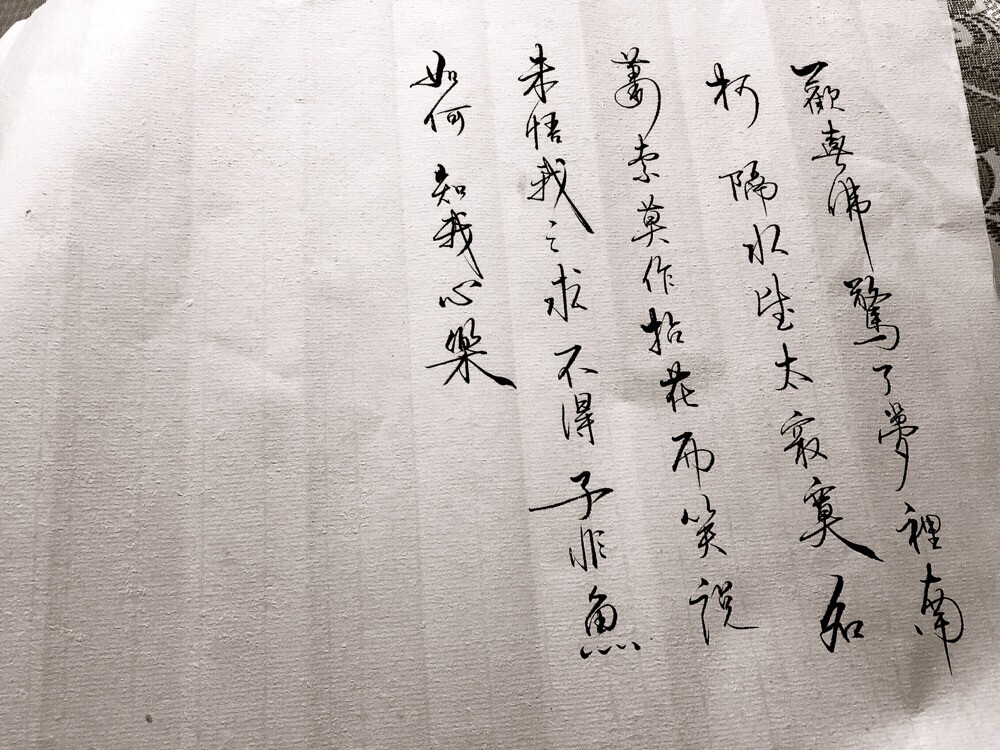 一歡喜佛驚了夢裡南
柯隔水望太寂寞名
蕭索莫作拈花而笑說
未悟我之求不得子非魚
如何知我心樂